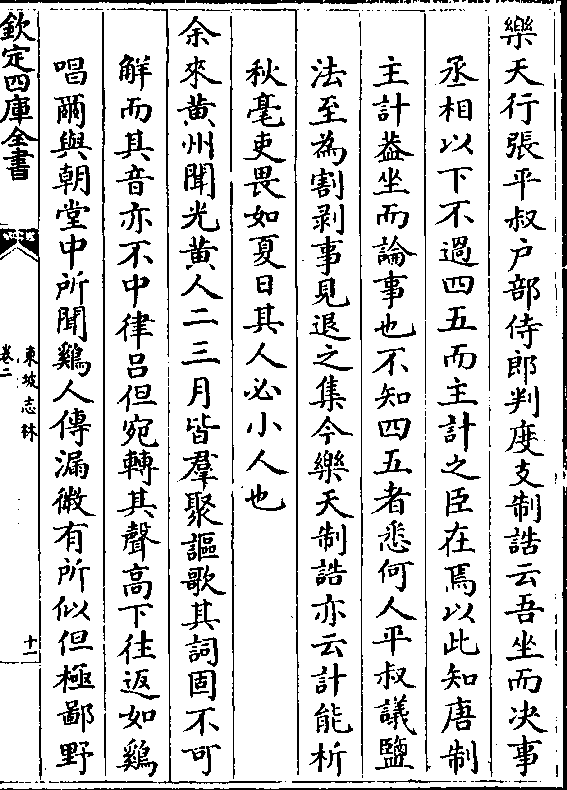 樂天行張平叔户部侍郎判度支制誥云吾坐而决事
丞相以下不過四五而主計之臣在焉以此知唐制
主計葢坐而論事也不知四五者悉何人平叔議鹽
法至為割剥事見退之集今樂天制誥亦云計能析
秋毫吏畏如夏日其人必小人也
余來黄州聞光黄人二三月皆羣聚謳歌其詞固不可
解而其音亦不中律吕但宛轉其聲高下往返如鷄
唱爾與朝堂中所聞鷄人傳漏微有所似但極鄙野
欽定四庫全書
東坡志林
卷二
十一